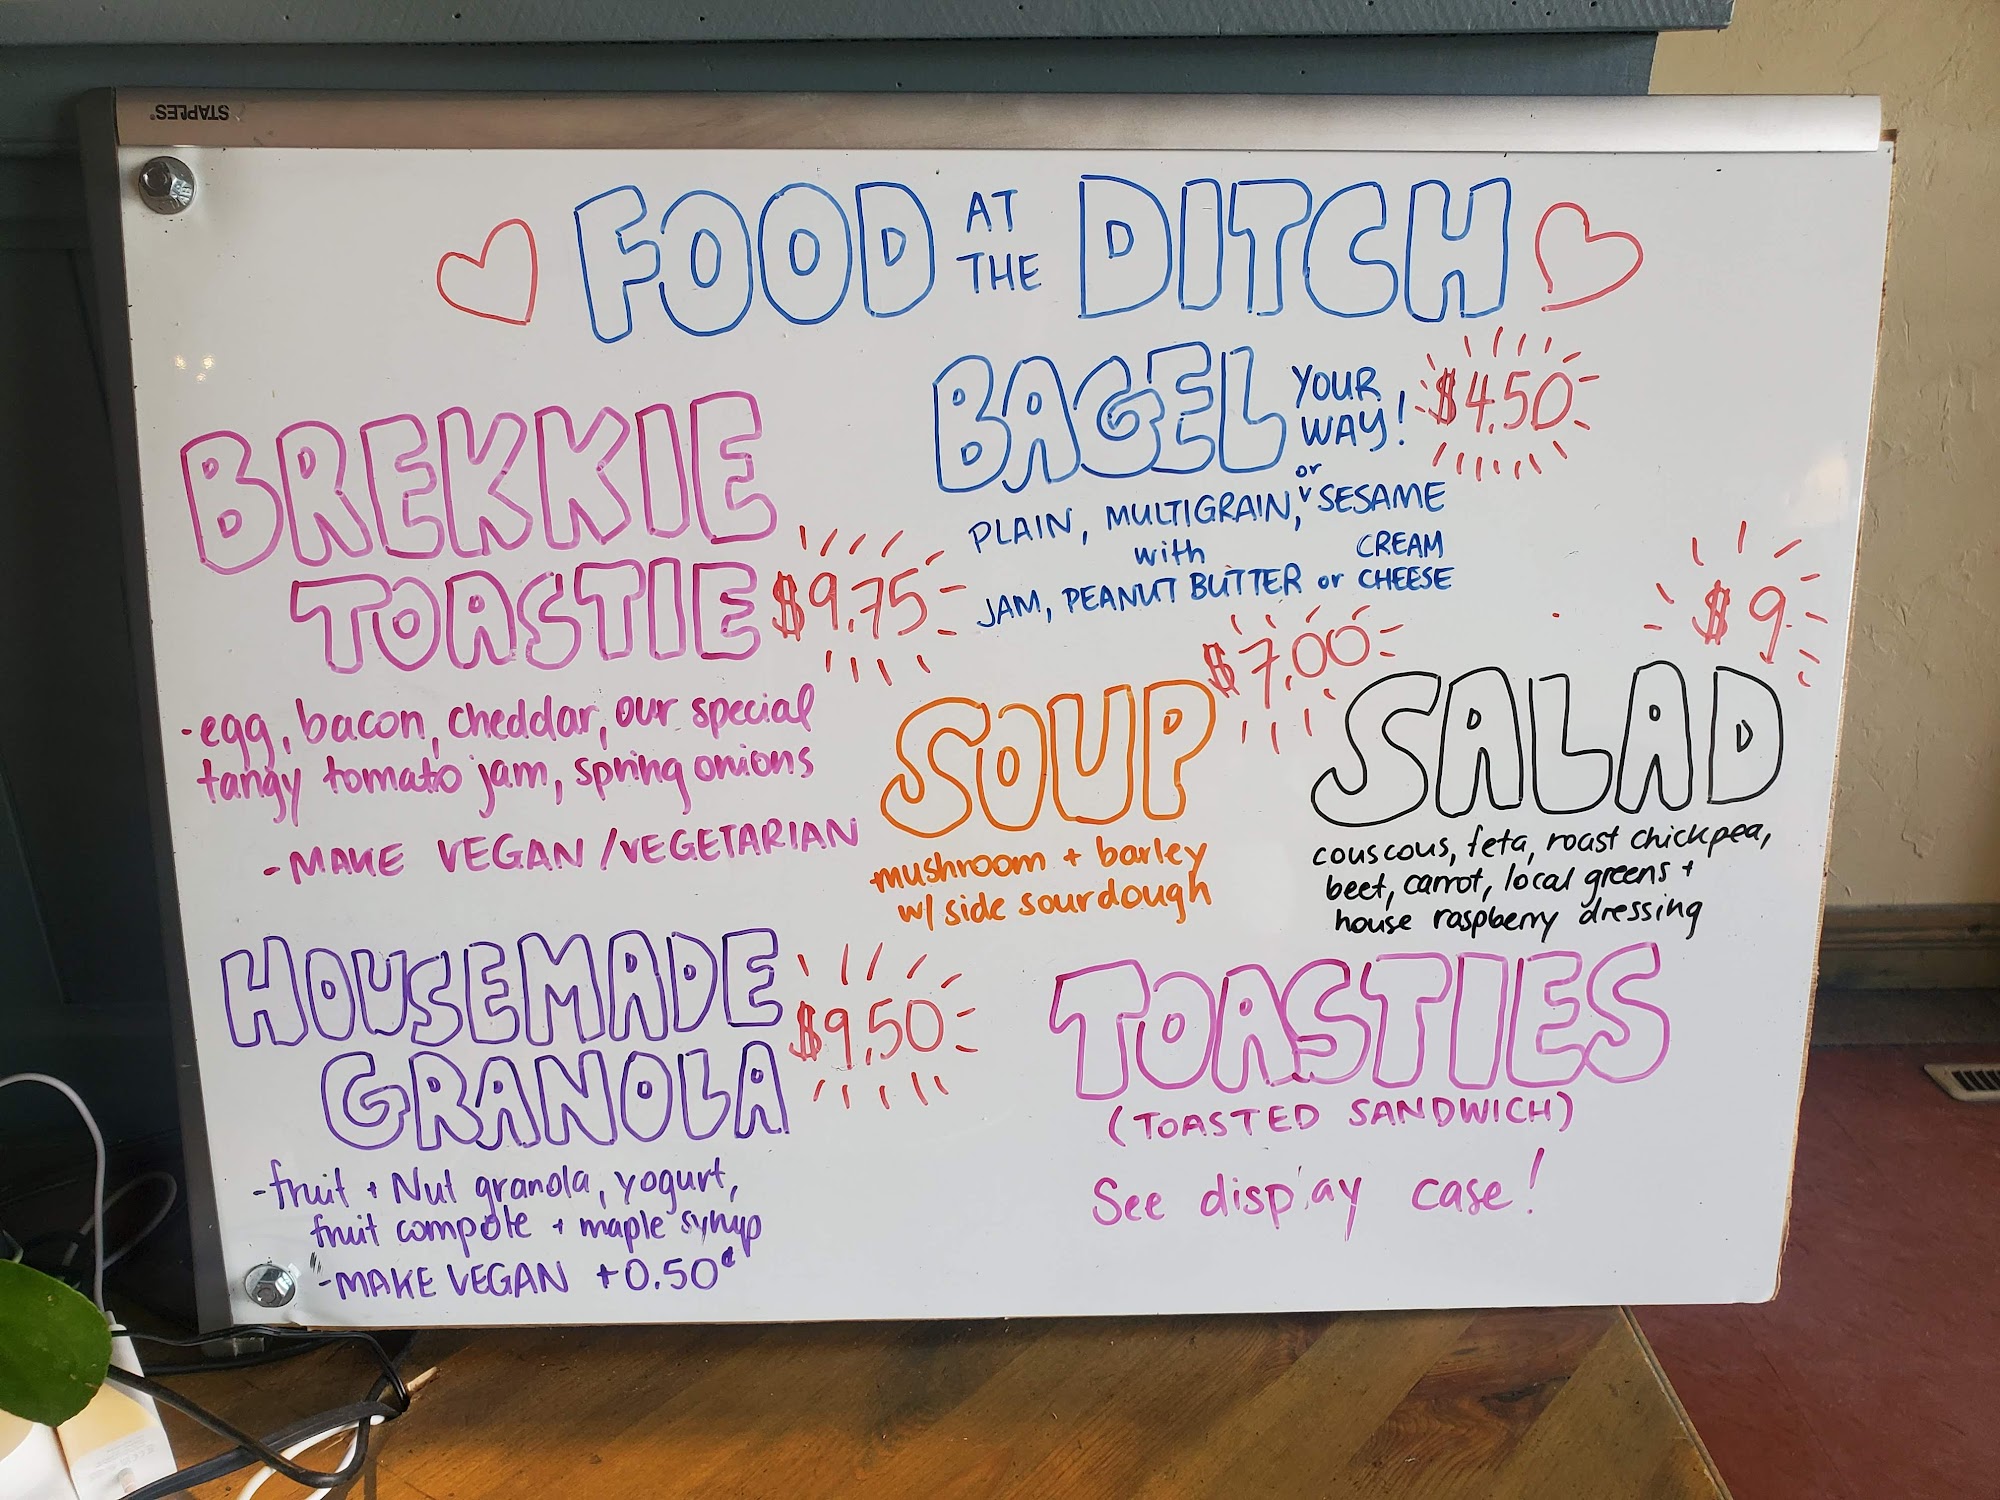 STAPLES®
FOOD AT THE DITCH
BREKKIE
TOASTIE $9.75
-egg, bacon, cheddar, our special
tangy tomato jam, spring onions
-MAKE VEGAN/VEGETARIAN
HOUSEMADE
GRANOLA $9.50
-fruit + Nut granola, yogurt,
fruit compote + maple syrup
-MAKE VEGAN +0.50¢
BAGEL YOUR WAY! $4.50
PLAIN, MULTIGRAIN, or SESAME
with
JAM, PEANUT BUTTER or CREAM CHEESE
SOUP $7.00
mushroom + barley
w/ side sourdough
SALAD $9
couscous, feta, roast chickpea,
beet, carrot, local greens +
house raspberry dressing
TOASTIES
(TOASTED SANDWICH)
See display case!